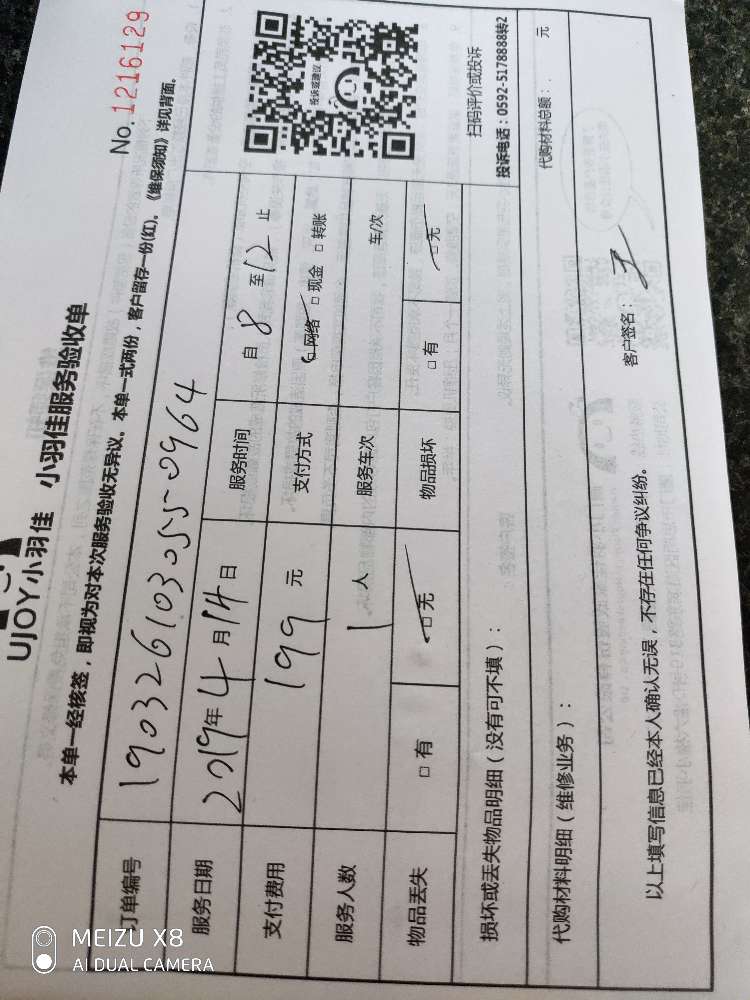 UJOY小羽佳 小羽佳服务验收单
No.1216129
本单一经核签，即视为对本次服务验收无异议。本单一式两份，客户留存一份(红)。《维保须知》详见背面。
订单编号 190326103055-0964
服务日期 2019年4月14日 服务时间 自8至12止
支付费用 199元 支付方式 □网络 □现金 □转账
服务人数 1人 服务车次 车/次
物品丢失 □有 □无 物品损坏 □有 □无
投诉或建议
扫码评价或投诉
投诉电话：0592-5178888转2
损坏或丢失物品明细（没有可不填）：
代购材料明细（维修业务）： 代购材料总额： 元
以上填写信息已经本人确认无误，不存在任何争议纠纷。 客户签名：
MEIZU X8
AI DUAL CAMERA